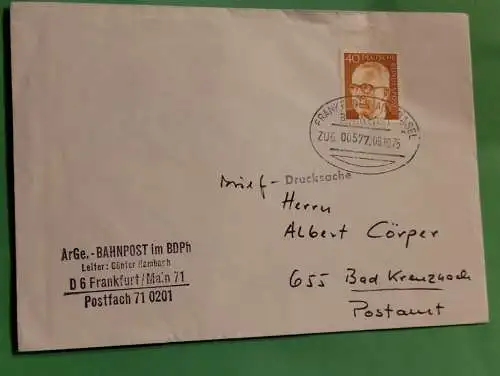 40 DEUTSCHE
BUNDESPOST
FRANKFURT
BASEL
ZUG 00577, 09.10.75
Brief- Drucksache
Herrn
Albert Cörper
655 Bad Kreuznach
Postamt
ArGe.-BAHNPOST im BDPh
Leiter: Günter Hambach
D 6 Frankfurt/Main 71
Postfach 71 0201